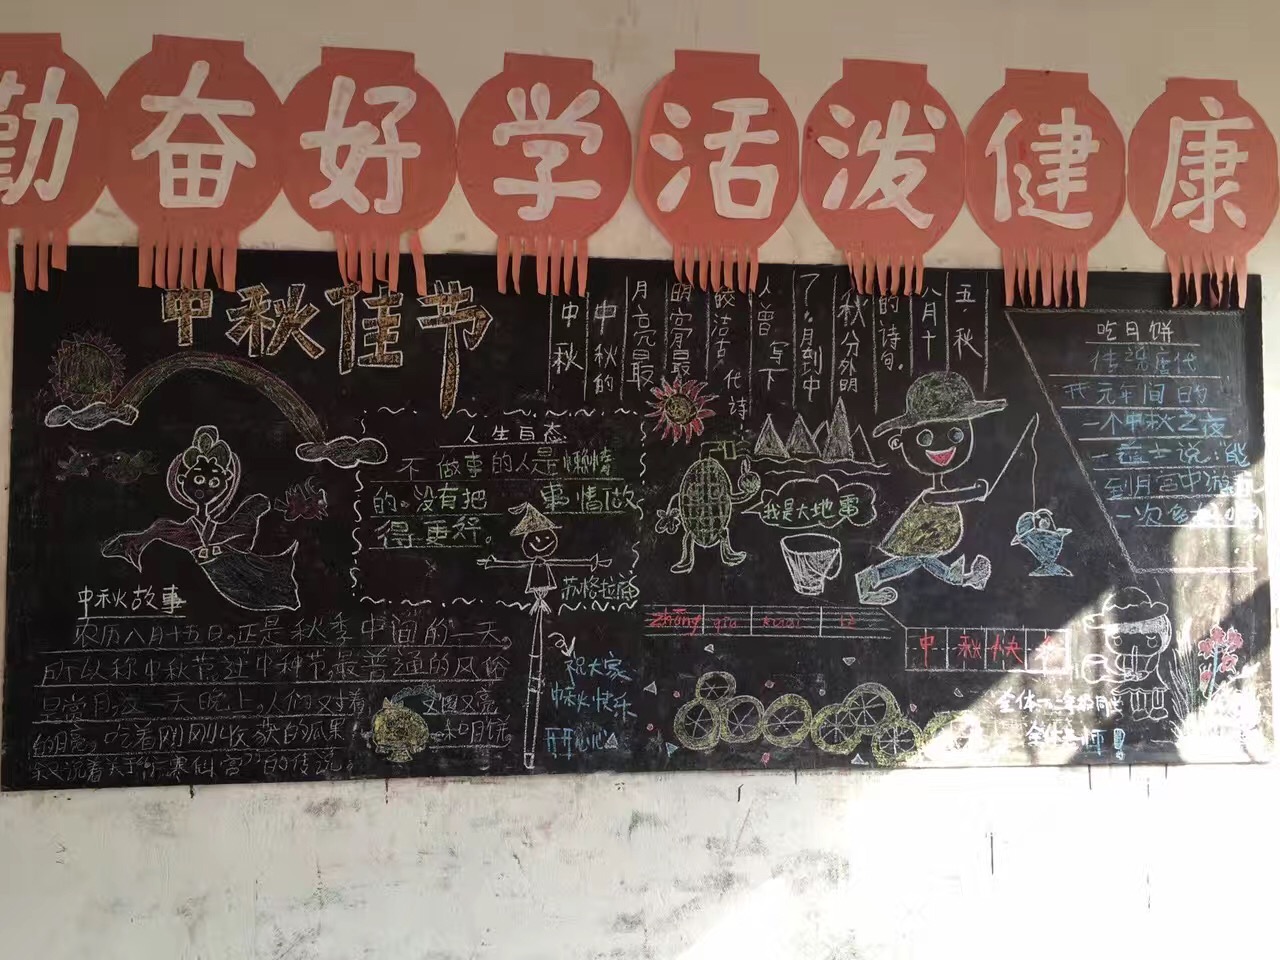 勤奋好学活泼健康
中秋佳节
中秋
中秋的
月亮最
明亮最
皎洁古代诗
人曾写下
了。月到中
秋分外明
的诗句。
八月十
五·秋
吃月饼
传说唐代
开元年间的
一个中秋之夜
一道士说：能
到月宫中游
一次
人生百态
不做事的人是懒惰
的。没有把 事情做
得更好。
苏格拉滴
我是大地雷
中秋故事
农历八月十五日，正是秋季中间的一天，
所以称中秋节。这中种节，最普通的风俗
是赏月。这一天晚上，人们对着又圆又亮
的月亮，吃着刚刚收获的瓜果和月饼，
说着关于 寒 宫”的传说。
祝大家
中秋快乐
开开心心
zhōng qiu kuai le
中秋快乐
全体 同
全体 师！